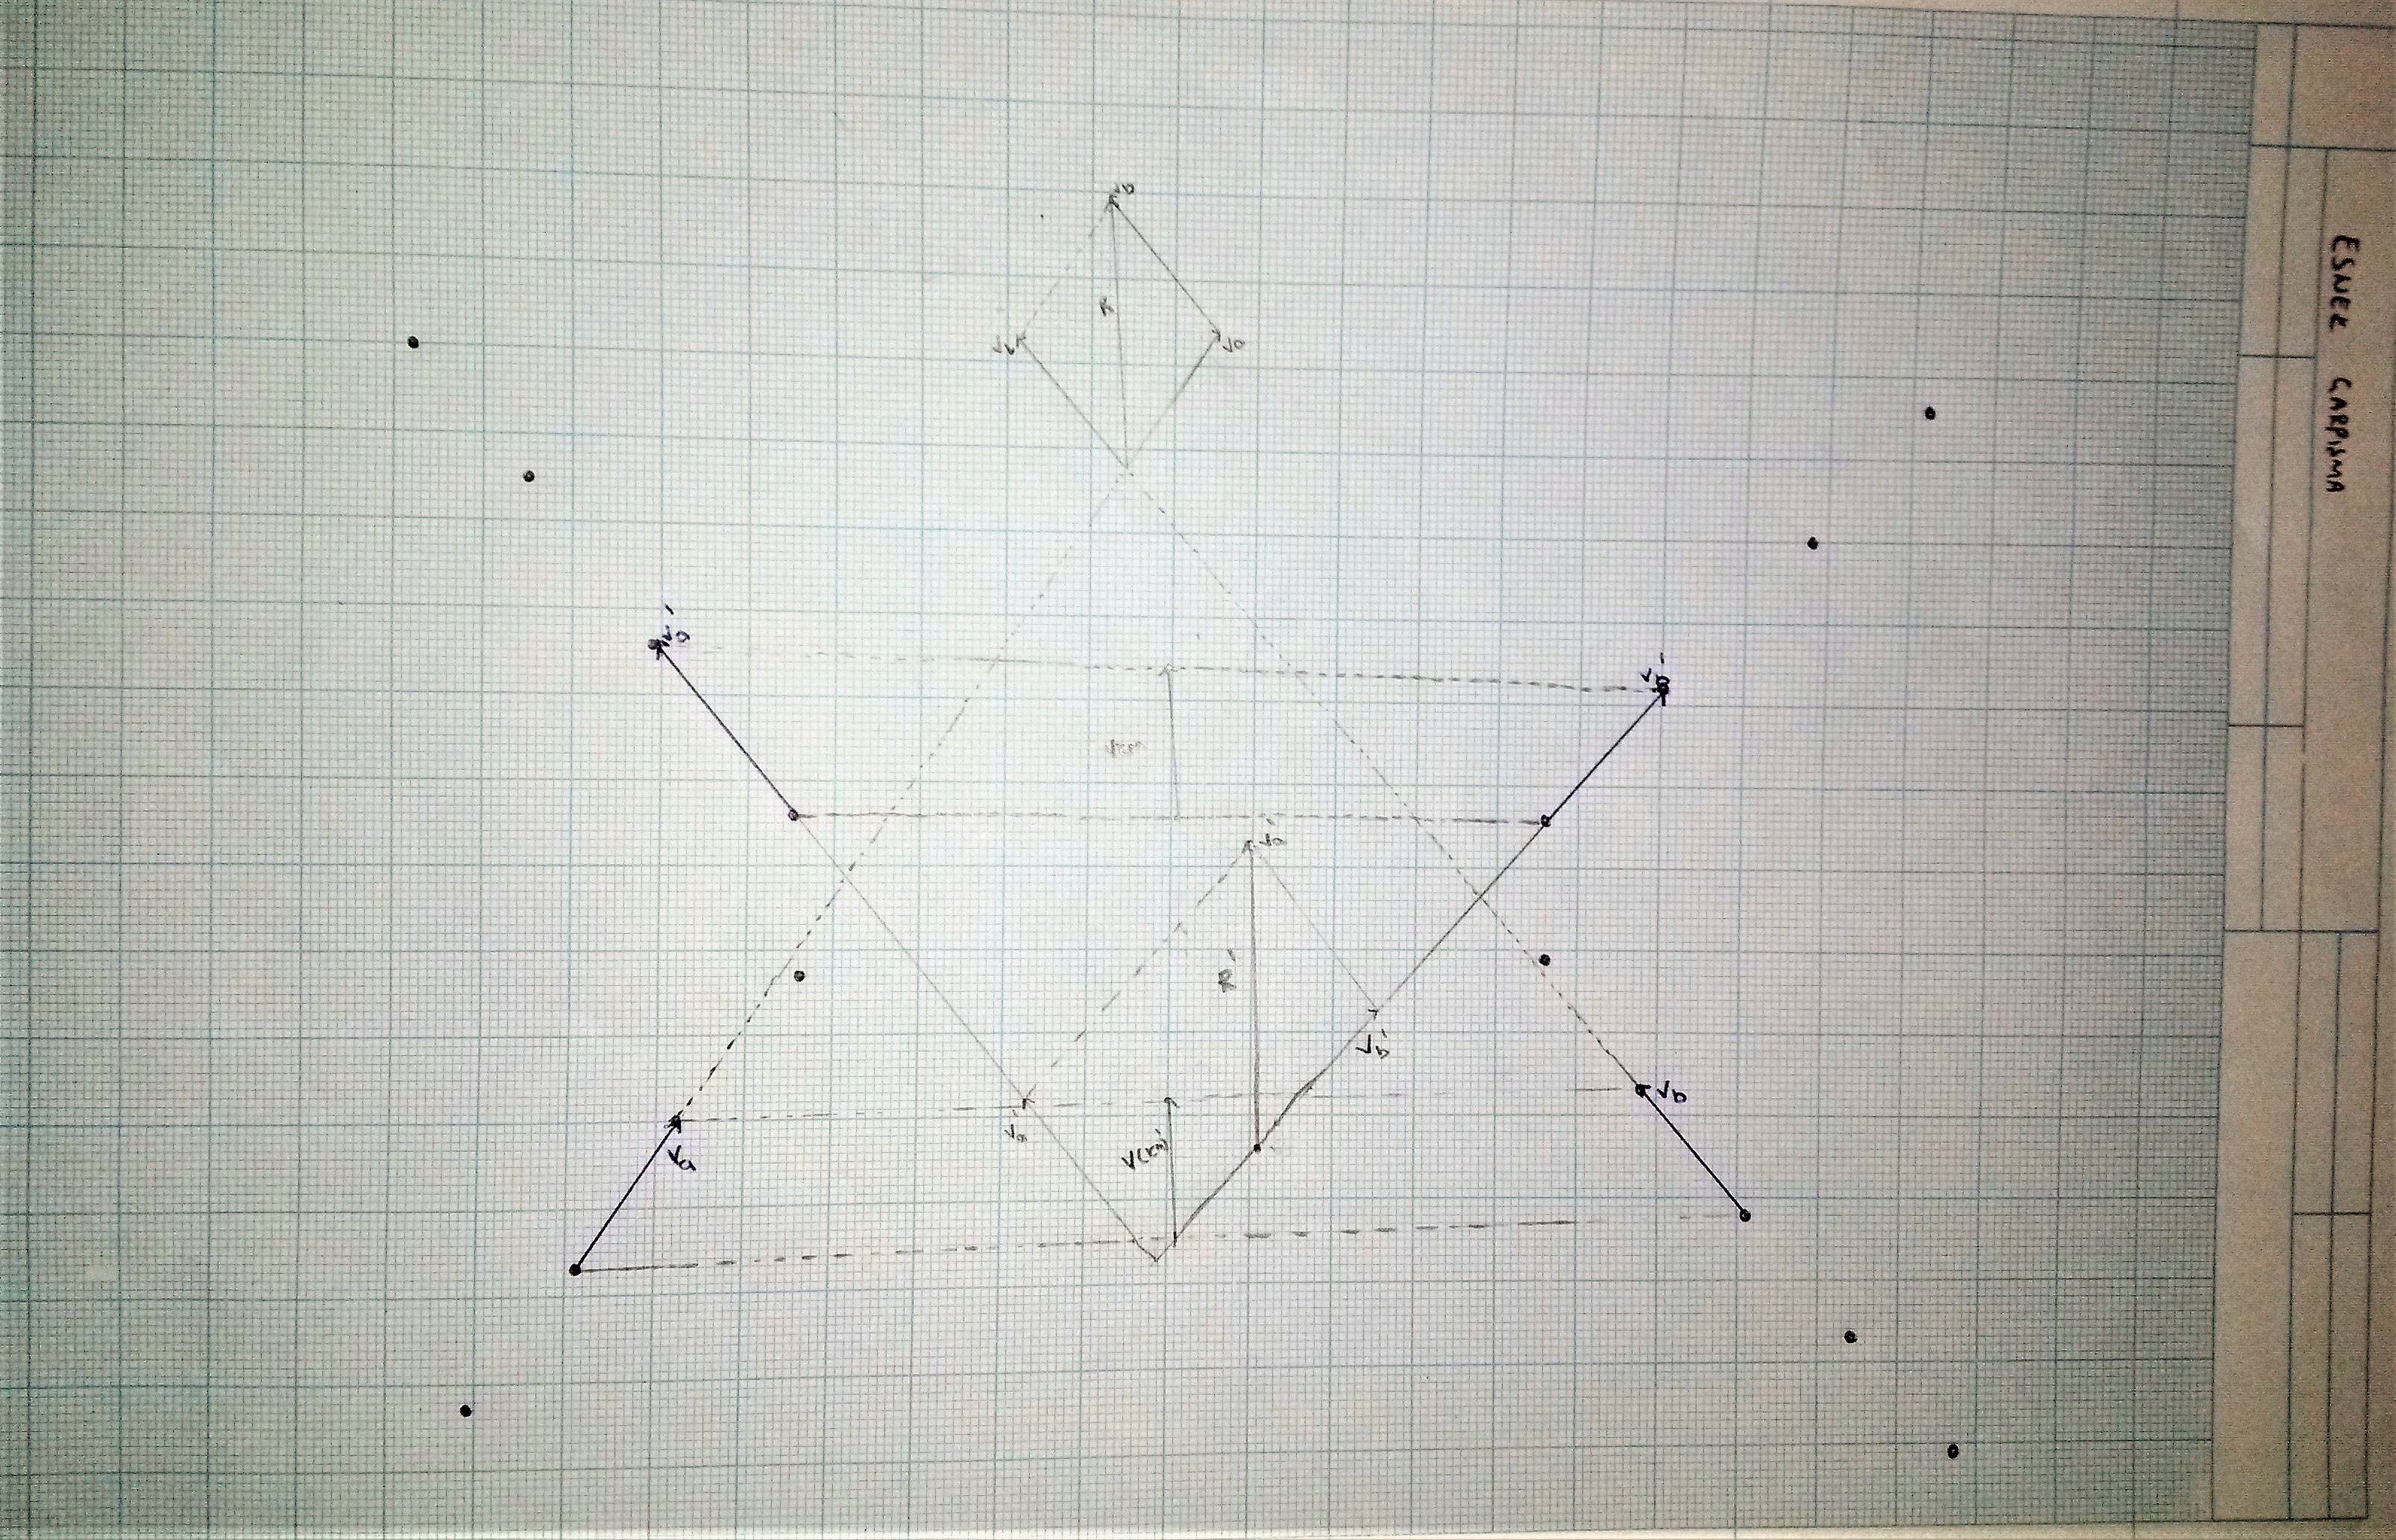 ESNEK ÇARPIŞMA
R
Vb
Va
Va'
Vb'
Vkm
Va'
R'
Vb'
Vb
Va'
Va
V(km)'